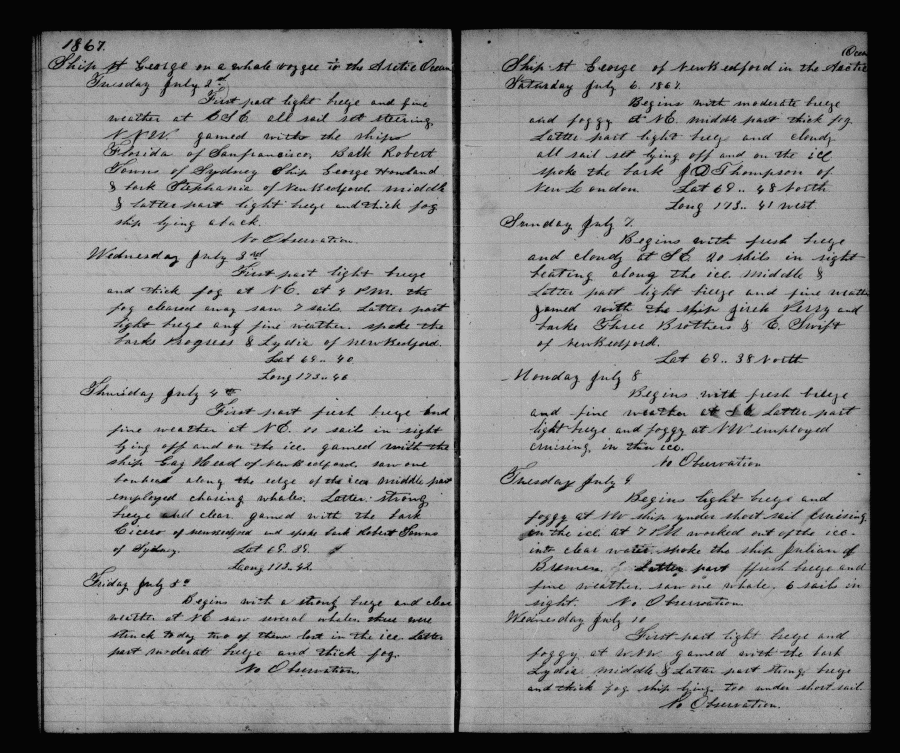 1867.
Ship St George on a whale voygee to the Arctic Ocean
Tuesday July 2nd
First part light breze and fine
weather at ESE all sail set steering
NNW gamed with the ship
Florida of Sanfrancisco, Balk Robert
Towns of Sydney Ship George Howland
& bark Stephania of New Bedford middle
& latter part light breze and thick fog
ship lying aback.
No Observation.
Wednesday July 3rd
First part light breze
and thick fog at NE. at 4 PM. the
fog cleared away saw 7 sails. Latter part
light breze and fine weather. spoke the
barks Progress & Lydia of New Bedford.
Lat 69.. 40
Long 173.. 46
Thursday July 4th
First part fresh breze and
fine weather at NE. sails in sight
lying off and on the ice. gamed with the
ship Gay Head of New Bedford. saw one
bowhead along the edge of the ice middle part
employed chasing whales. Latter. strong
breze and clear gamed with the bark
Cicero of new Bedford and spoke bark Robert Towns
of Sydney. Lat 69.. 39.
Long 173.. 42
Friday July 5th
Begins with a strong breze and clear
weather at NE saw several whales. there were
struck today two of them lost in the ice. Latter
part moderate breze and thick fog.
No Observation.
Ocean
Ship St George of New Bedford in the Arctic
Saturday July 6. 1867.
Begins with moderate breze
and foggy at NE. middle part thick fog.
Latter part light breze and cloudy
all sail set lying off and on the ice
spoke the bark J D Thompson of
New London Lat 69.. 48 North
Long 173.. 41 west
Sunday July 7.
Begins with fresh breze
and cloudy at SE 20 sails in sight
beating along the ice. middle &
Latter part light breeze and fine weather
gamed with the ship Jireh Perry and
barks Three Brothers & C. Swift
of New Bedford.
Lat 69.. 38 North
Monday July 8
Begins with fresh breze
and fine weather at SE Latter part
light breze and foggy at NW employed
cruising in thin ice.
No Observation
Tuesday July 9
Begins light breze and
foggy at NW ship under short sail cruising
in the ice. at 7 PM worked out of the ice
into clear water. spoke the ship Julian of
Bremen. Latter part ffresh breze and
fine weather. saw one whale, 6 sails in
sight. No Observation.
Wednesday July 10
First part light breze and
foggy at WNW gamed with the bark
Lydia middle & Latter part strong breze
and thick fog ship lying too under short sail
No Observation.